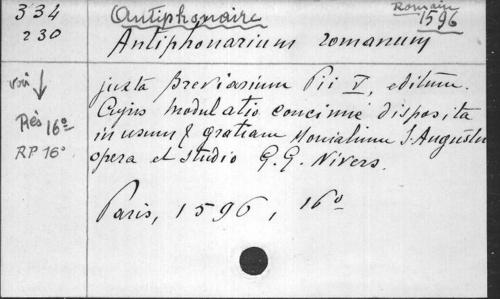 334
230
Antiphonaire
Romain
1596
Antiphonarium romanum
voir
Rès 16º
RP 16º
juxta Breviarium Pii V, editum.
Cujus modulatio concinné disposita
in usum & gratiam Monialium S. Augustini
opera et studio G. G. Nivers.
Paris, 1596, 16º